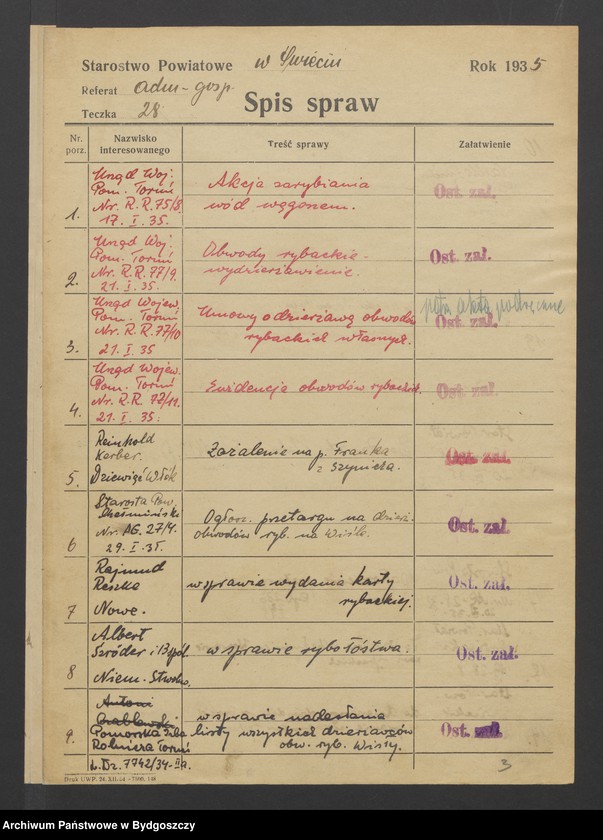 Starostwo Powiatowe w Świeciu
Rok 1935
Referat adm-gosp.
Teczka 28
Spis spraw
Nr. porz.
Nazwisko interesowanego
Treść sprawy
Załatwienie
1.
Urząd Woj.
Pom. Toruń
Nr. R.R. 75/8.
17. I. 35.
Akcja zarybiania
wód wągozem.
Ost. zał.
2.
Urząd Woj.
Pom. Toruń
Nr. R.R. 77/9.
21. I. 35.
Obwody rybackie-
wydzierżawienie.
Ost. zał.
3.
Urząd Wojew.
Pom. Toruń
Nr. R.R. 77/10
21. I. 35
Umowy o dzierżawą obwodów
rybackich własnych.
akta podręczne
Ost. zał.
4.
Urząd Wojew.
Pom. Toruń
Nr. R.R. 72/11.
21. I. 35.
Ewidencja obwodów rybackich.
Ost. zał.
5.
Reinhold
Kerber.
Dziewięć Włók
Zażalenie na p. Franka
z Szynicha.
Ost. zał.
6
Starosta Pow.
Chełmiński
Nr. AG. 27/4.
29. I. 35.
Ogłosz. przetargu na dzierż.
obwodów ryb. na Wiśle.
Ost. zał.
7
Rajmund
Reszka
Nowe.
w sprawie wydania karty
rybackiej.
Ost. zał.
8
Albert
Szröder i 13 spól.
Niem. Stwolno,
w sprawie rybołóstwa.
Ost. zał.
9.
Antoni
Grablewski
Pomorska Izba
Rolnicza Toruń
L. Dz. 7742/34-II/a.
w sprawie nadesłania
listy wszystkich dzierżawców
obw. ryb. Wisły.
Ost. zał.
3
Druk UWP. 24. XII. 34 -7000. 146
Archiwum Państwowe w Bydgoszczy